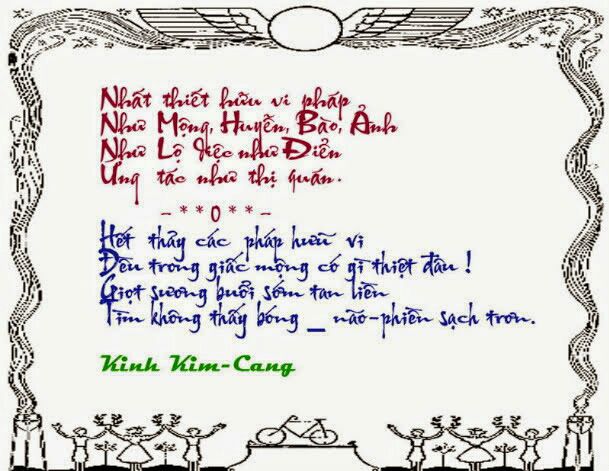 Nhất thiết hữu vi pháp
Như Mộng, Huyễn, Bào, Ảnh
Như Lộ diệc như Điển
Ưng tác như thị quán.
- * * 0 * * -
Hết thảy các pháp hữu vi
Đều trong giấc mộng có gì thiệt đâu !
Giọt sương buổi sớm tan liền
Tìm không thấy bóng _ não-phiền sạch trơn.
Kinh Kim-Cang